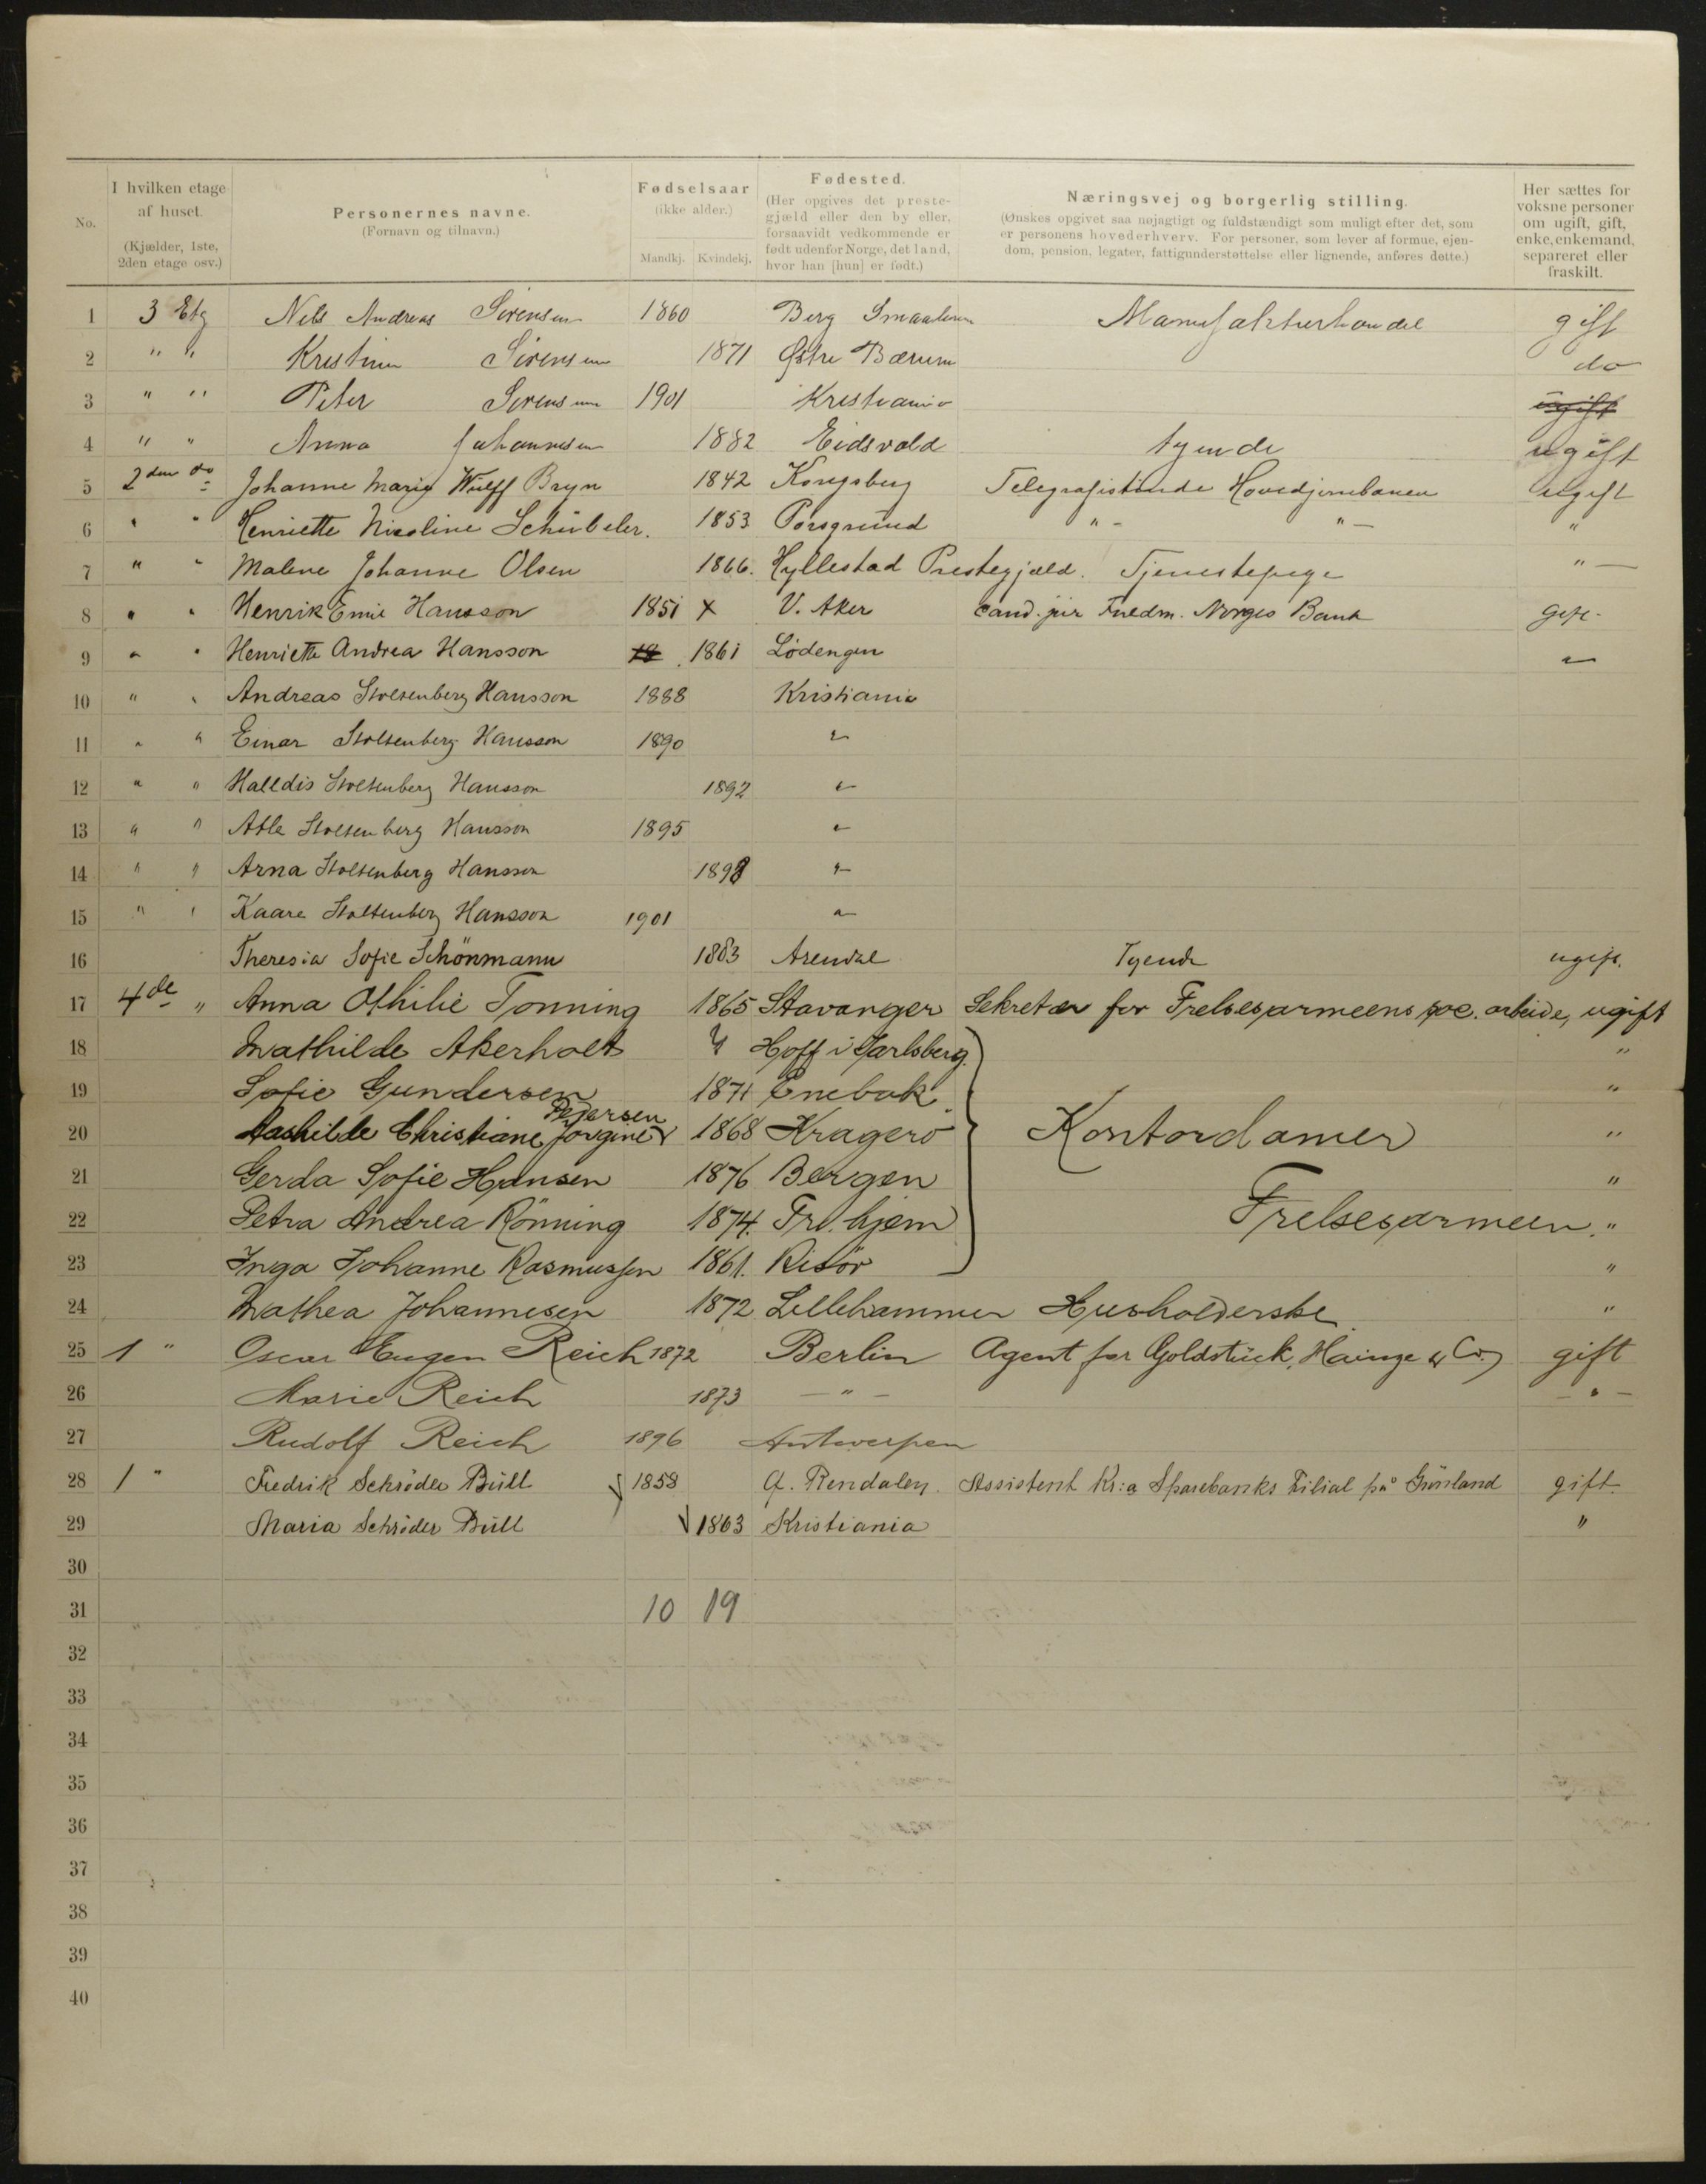 No.
I hvilken etage af huset.
(Kjælder, 1ste, 2den etage osv.)
Personernes navne.
(Fornavn og tilnavn.)
Fødselsaar
(ikke alder.)
Mandkj. Kvindekj.
Fødested.
(Her opgives det prestegjæld eller den by eller, forsaavidt vedkommende er født udenfor Norge, det land, hvor han [hun] er født.)
Næringsvej og borgerlig stilling.
(Ønskes opgivet saa nøjagtigt og fuldstændigt som muligt efter det, som er personens hovederhverv. For personer, som lever af formue, ejendom, pension, legater, fattigunderstøttelse eller lignende, anføres dette.)
Her sættes for voksne personer om ugift, gift, enke, enkemand, separeret eller fraskilt.
1 3 Etg Nils Andreas Sørensen 1860 Berg Smaalenen Manufakturhandel gift
2 " " Kristine Sørensen 1871 Østre Bærum do
3 " " Peter Sørensen 1901 Kristiania ugift
4 " " Anna Johannesen 1882 Eidsvold tyende ugift
5 2den do Johanne Marie Wulff Bryn 1842 Kongsberg Telegrafistinde Hovedjernbanen ugift
6 " " Henriette Nicoline Schübeler. 1853 Porsgrund " - " - "
7 " " Malene Johanne Olsen 1866. Hyllestad Prestegjæld. Tjenestepige " -
8 " " Henrik Emil Hansson 1851 x V. Aker cand. jur Fuldm. Norges Bank gift.
9 " " Henriette Andrea Hansson 18 1861 Lødengen "
10 " " Andreas Stoltenberg Hansson 1888 Kristiania
11 " " Einar Stoltenberg Hansson 1890 "
12 " " Halldis Stoltenberg Hansson 1892 "
13 " " Atle Stoltenberg Hansson 1895 "
14 " " Arna Stoltenberg Hansson 1898 "
15 " " Kaare Stoltenberg Hansson 1901 "
16 Theresia Sofie Schönmann 1883 Arendal Tyende ugift.
17 4de " Anna Othilie Tonning 1865 Stavanger Sekretær for Frelsesarmeens soc. arbeide, ugift
18 Mathilde Akerholt " Hoff i Jarlsberg. "
19 Sofie Gundersen 1871 Enebak. "
Pedersen
20 Mathilde Christiane Jørgine 1868 Kragerö Kontordamer "
21 Gerda Sofie Hansen 1876 Bergen "
22 Petra Andrea Rönning 1874. Trl. hjem Frelsesarmeen. "
23 Inga Johanne Rasmussen 1861. Risör "
24 Mathea Johannesen 1872 Lillehammer Husholderske "
25 1 " Oscar Eugen Reich 1872 Berlin Agent for Goldstück, Hainze & Co. gift
26 Marie Reich 1873 - " - - " -
27 Rudolf Reich 1896 Antwerpen
28 1 " Fredrik Schrøder Büll 1858 Ø. Rendalen. Assistent Kr:a Sparebanks Filial på Grönland gift.
29 Maria Schrøder Büll 1863 Kristiania "
30
31 10 19
32
33
34
35
36
37
38
39
40